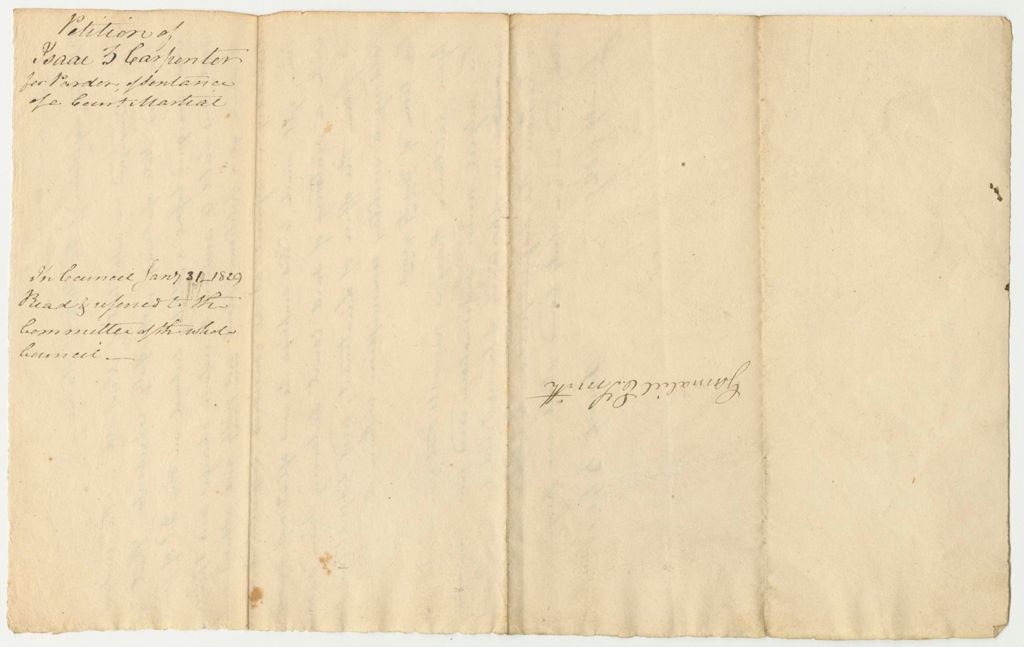 Petition of
Isaac F Carpenter
for Pardon, of Sentance
of a Court Martial
In Council Jany 31, 1829
Read & refered to the
Committee of the whole
Council —
Gamaliel E Smith